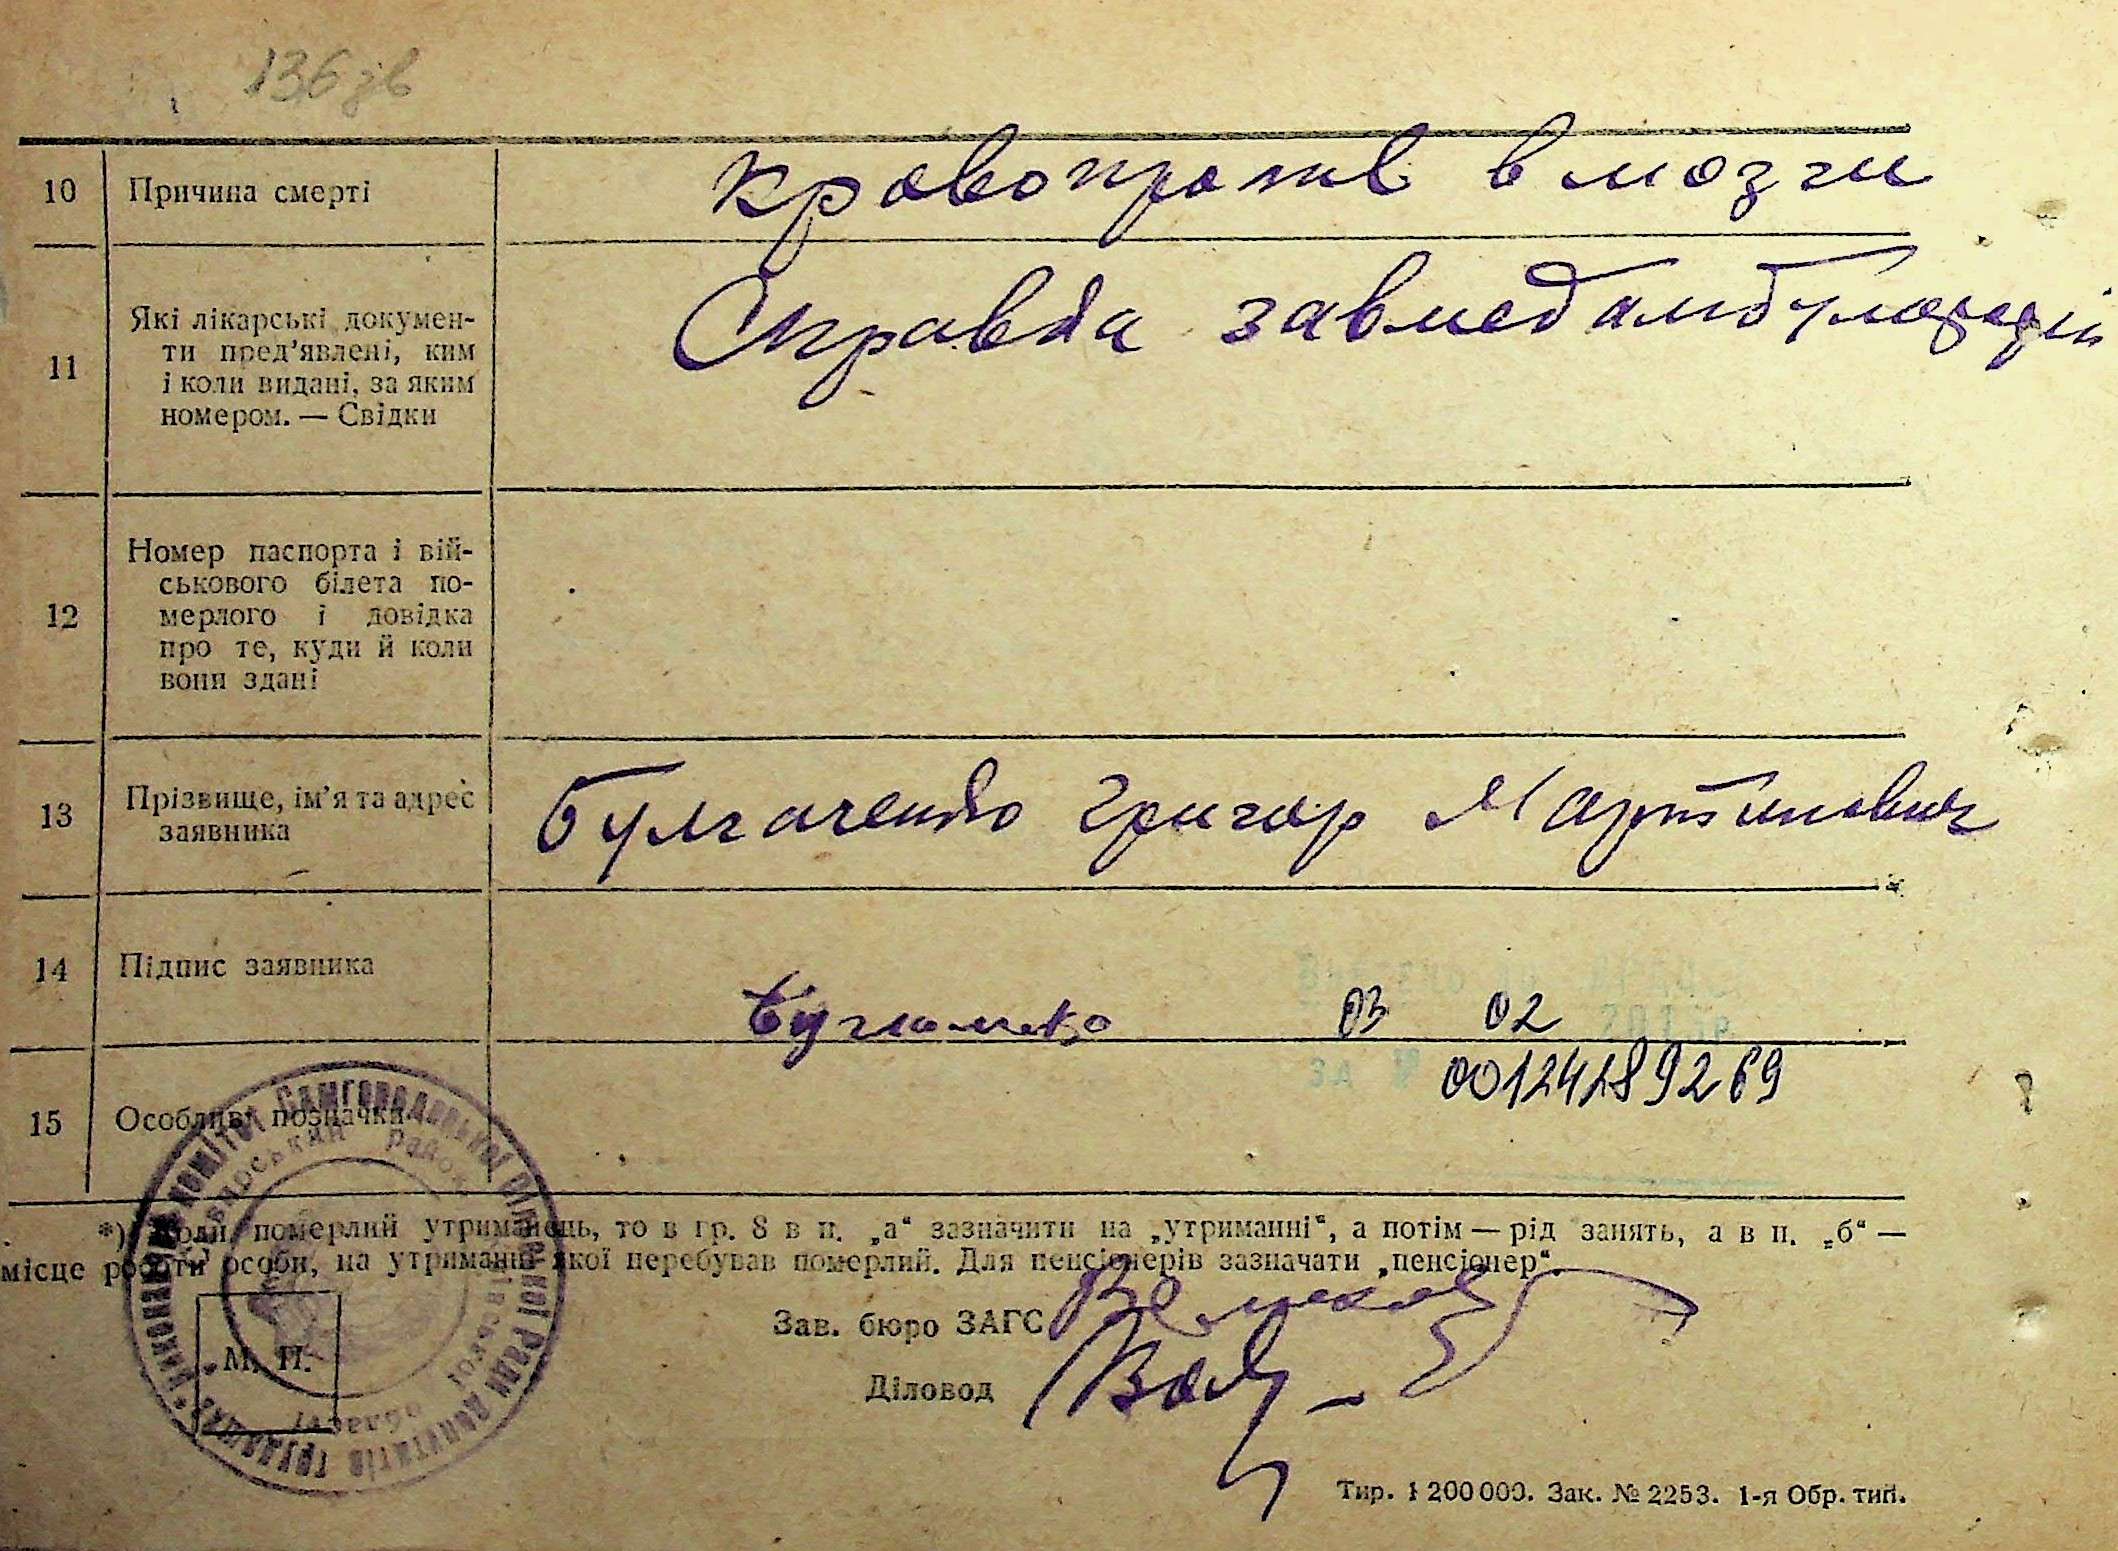 136 зв
10 Причина смерті
кровопролив в мозги
11 Які лікарські докумен-
ти пред'явлені, ким
і коли видані, за яким
номером. — Свідки
Справка завмедамбулаторії
12 Номер паспорта і вій-
ськового білета по-
мерлого і довідка
про те, куди й коли
вони здані
13 Прізвище, ім'я та адрес
заявника
Григор Мартинович
14 Підпис заявника
03 02 201 р
за № 00124189269
15 Особливі позначки
*) Коли померлий утриманець, то в гр. 8 в п. „а“ зазначити на „утриманні“, а потім — рід занять, а в п. „б“ —
місце роботи особи, на утриманні якої перебував померлий. Для пенсіонерів зазначати „пенсіонер“.
Зав. бюро ЗАГС
Діловод
М. П.
Ради депутатів трудящих
район
області
Тир. 1 200 000. Зак. № 2253. 1-я Обр. тип.